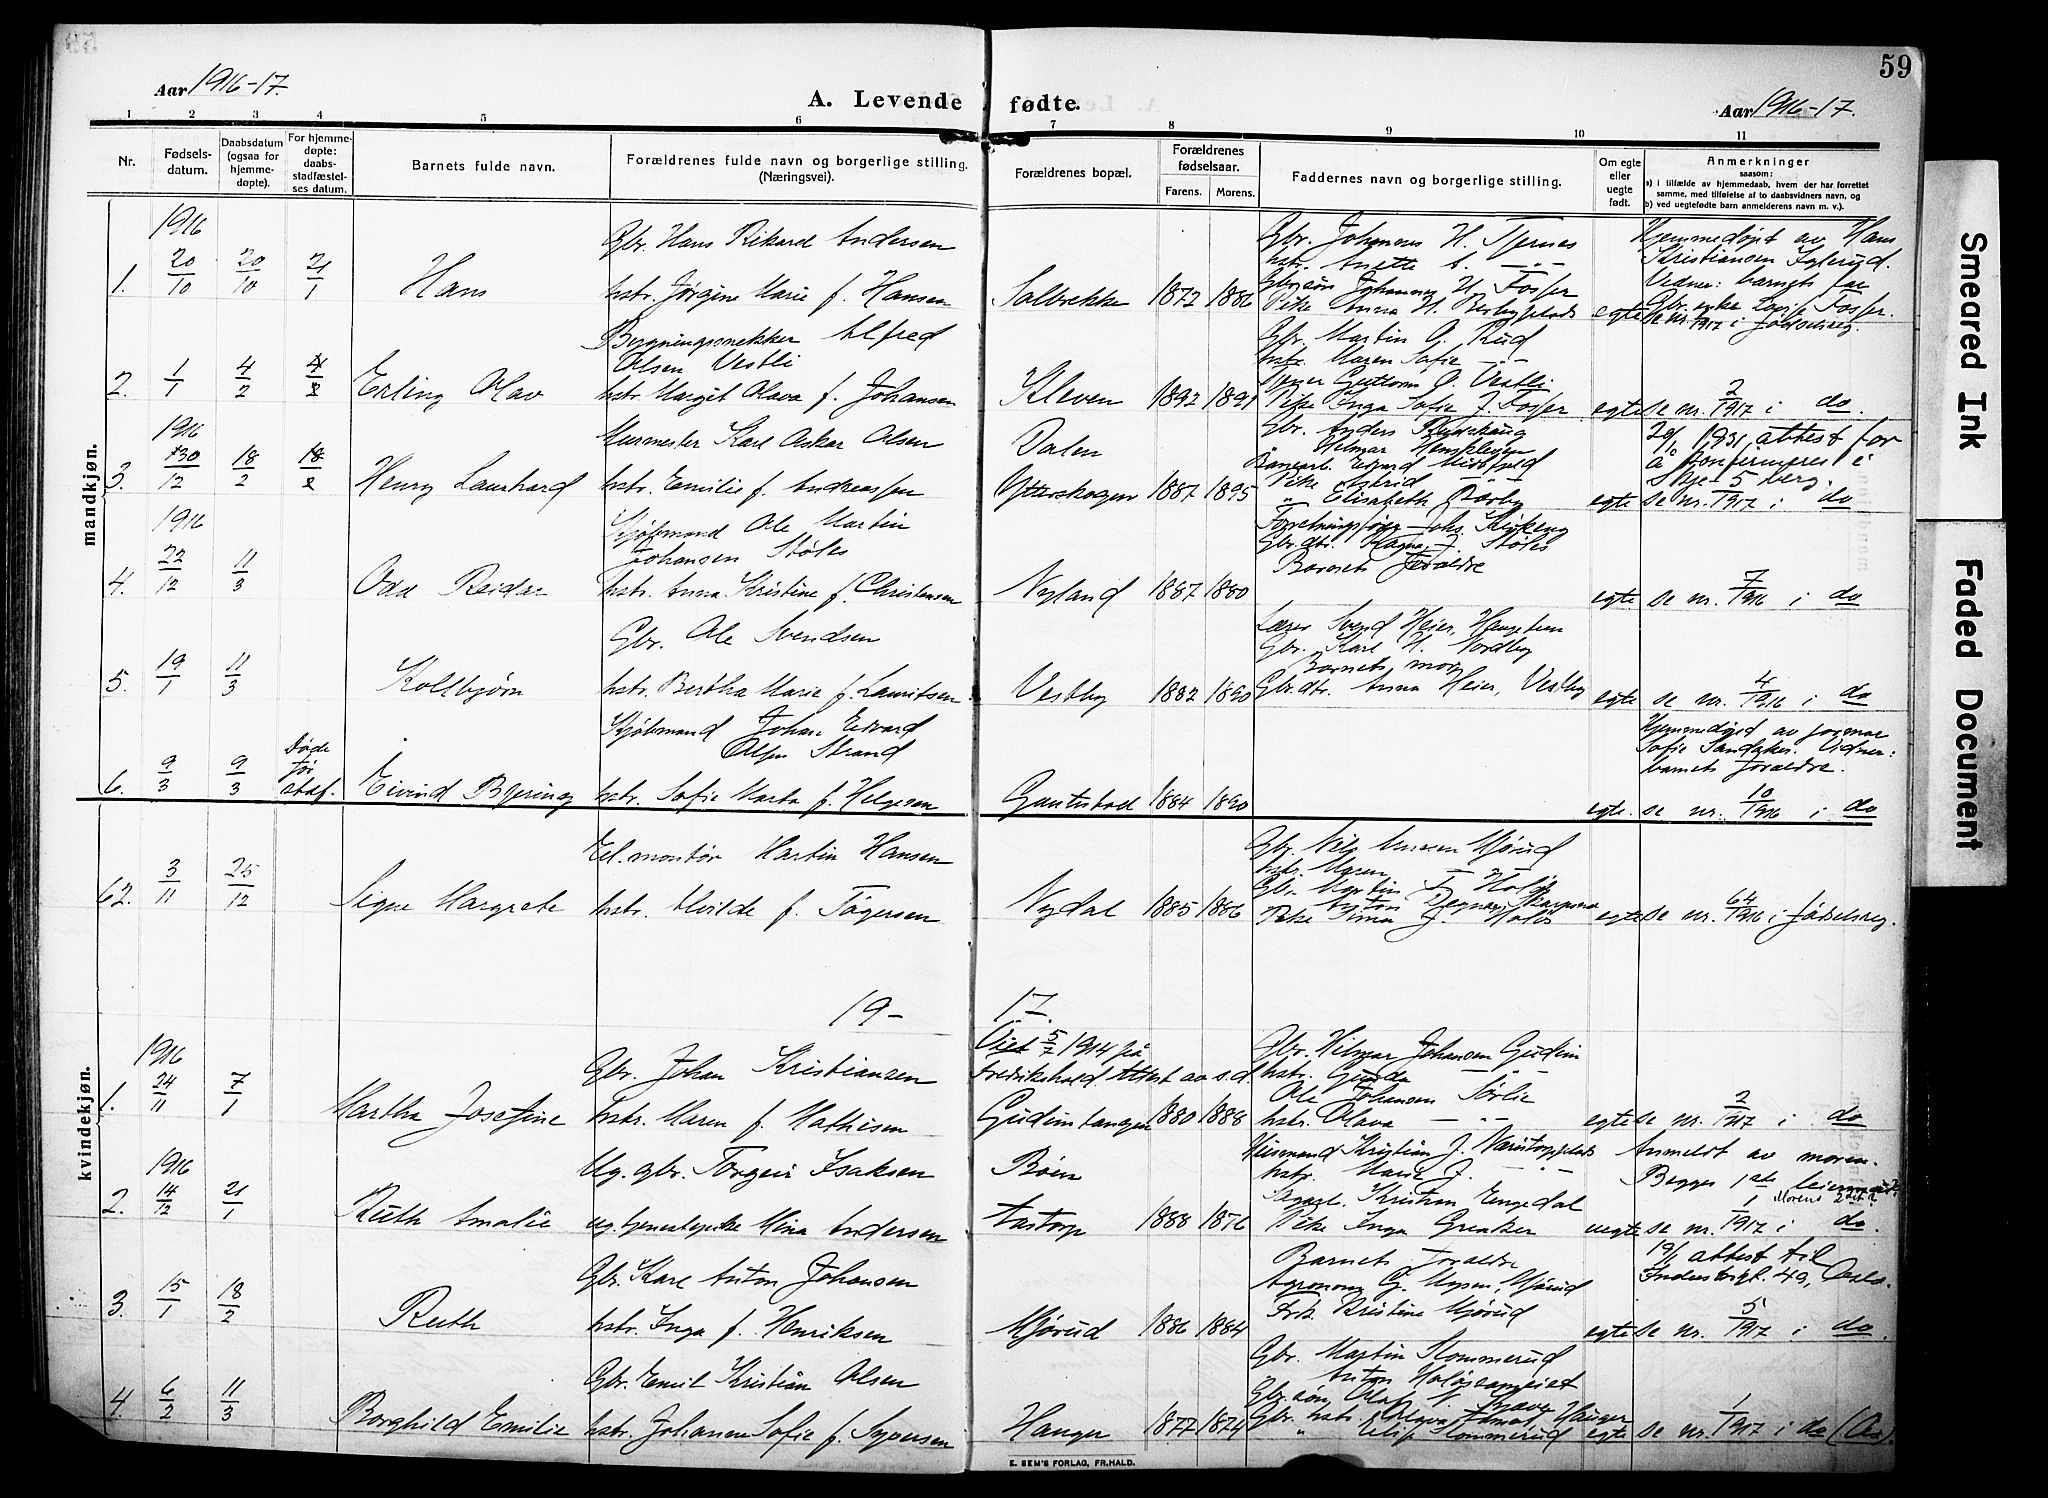 59
Aar 1916-17.
A. Levende fødte.
Aar 1916-17.
1 2 3 4 5 6 7 8 9 10 11
Nr.
Fødsels-
datum.
Daabsdatum
(ogsaa for
hjemme-
døpte).
For hjemme-
døpte:
daabs-
stadfæstel-
ses datum.
Barnets fulde navn.
Forældrenes fulde navn og borgerlige stilling.
(Næringsvei).
Forældrenes bopæl.
Forældrenes
fødselsaar.
Farens. Morens.
Faddernes navn og borgerlige stilling.
Om egte
eller
uegte
født.
Anmerkninger
saasom:
a) i tilfælde av hjemmedaab, hvem der har forrettet
samme, med tilføielse af to daabsvidners navn, og
b) ved uegtefødte barn anmelderens navn m. v.).
mandkjøn.
1916
1. 20/10 20/10 21/1 Hans
Gbr. Hans Rikard Andersen
hstr. Jørgine Marie f. Hansen
Solbrekke 1872 1886
Gbr. Johannes H. Tjernes
hstr. Anette A. — " —
Gbrsøn Johannes H. Fosser
Pike Anna H. Berbyplads
egte
Hjemmedøpt av Hans
Kristiansen
Vidner: barnets far
Gbr. enke Lovise Fosser.
se nr. /1917 i fødselsreg.
2. 1/1 4/2 4/2 Erling Olav
Bygningssnekker Alfred
Olsen Vestli
hstr. Margit Olava f. Johansen
Kleven 1892 1891
Gbr. Martin O. Rud
hstr. Maren Sofie — " —
Tjener Guttorm O. Vestli
Pike Inga Sofie J. Fosser
egte se nr. 2/1917 i do.
1916
3. 30/12 18/2 18/2 Henry Laurhard
Murmester Karl Oskar Olsen
hstr. Emilie f. Andreassen
Dalen
Ytterskogen 1887 1895
Gbr. Anders
" Helmar
Banearb. Edvard
Pike Astrid — " —
" Elisabeth Berby
egte
20/1 1931 attest for
å konfirmeres i
Skjeberg.
se nr. 5/1917 i do
1916
4. 22/12 11/3 Odd Reidar
Sjømand Ole Martin
Johansen Støles
hstr. Anna Kristine f. Christensen
Nyland 1887 1880
Forretningsfører Johs. Kirkeng
Gbr.dtr. Ragna J. Støles
Barnets forældre
egte se nr. 7/1916 i do
5. 19/1 11/3 Kolbjørn
Gbr. Ole Svendsen
hstr. Bertha Marie f. Lauritsen
Vestby 1882 1890
Lærer Svend Heier,
Gbr. Karl H. Nordby
Barnets mor
Gbr.dtr. Anna Heier, Vestby
egte se nr. 4/1916 i do
6. 9/3 9/3 Døde
før
stadf. Eivind Bjering
Sjømand Johan Edvard
Olsen Strand
hstr. Sofie Marta f. Helgesen
Gautestad 1884 1890
Hjemmedøpt av jormor
Sofie Sandaker. Vidner:
barnets forældre.
egte. se nr. 10/1916 i do
kvindekjøn.
62. 3/11 25/12 Signe Margrete
El. montør Martin Hansen
hstr. Alvilde f. Tøgersen
Nydal 1885 1886
Gbr. Nils Mjørud
hstr. Maren — " —
Gbr. Martin J. Holøs
Anton
Pike J. Holøs
egte se nr. 64/1916 i fødselsreg.
19— 17.
1916
1. 24/11 7/1 Martha Josefine
Gbr. Johan Kristiansen
hstr. Maren f. Mathisen
Viet 5/7 1914 på
Fredrikshald. Attest av s.d.
Gudimtangen 1880 1888
Gbr. Hilmar Johansen Gudim
hstr. Gunda — " —
Ole Johansen Sørlie
hstr. Olava — " —
egte se nr. 2/1917 i do
1916
2. 14/12 21/1 Ruth Amalie
Ug. gbr. Torgeir Isaksen
ug. tjenestepike Mina Andersen
Bøen
Aastorp 1888 1876
Kristian J.
hstr. Marie J. — " —
Kristian Engedal
Pike Inga Greaker
uegte
Anmeldt av moren.
Begges 1ste leiermaal.
Morens 2det?
se nr. 1/1917 i do.
3. 15/1 18/2 Ruth
Gbr. Karl Anton Johansen
hstr. Inga f. Henriksen
Mjørud 1886 1884
Barnets forældre
Agronom G. Mysen, Mjørud
Frk. Kristine Mjørud
egte
19/1 attest til
49, Oslo.
se nr. 5/1917 i do.
4. 6/2 11/3 Borghild Emilie
Gbr. Emil Kristian Olsen
hstr. Johanne Sofie f. Syversen
Hauger 1877 1874
Gbr. Martin Kommerud
Anton
Gbr.søn Olaf
Gbr. hstr. Olava Hauger
" Kommerud
egte se nr. 1/1917 i do (Aa).
E. SEM'S FORLAG, FR.HALD.
Smeared Ink
Faded Document